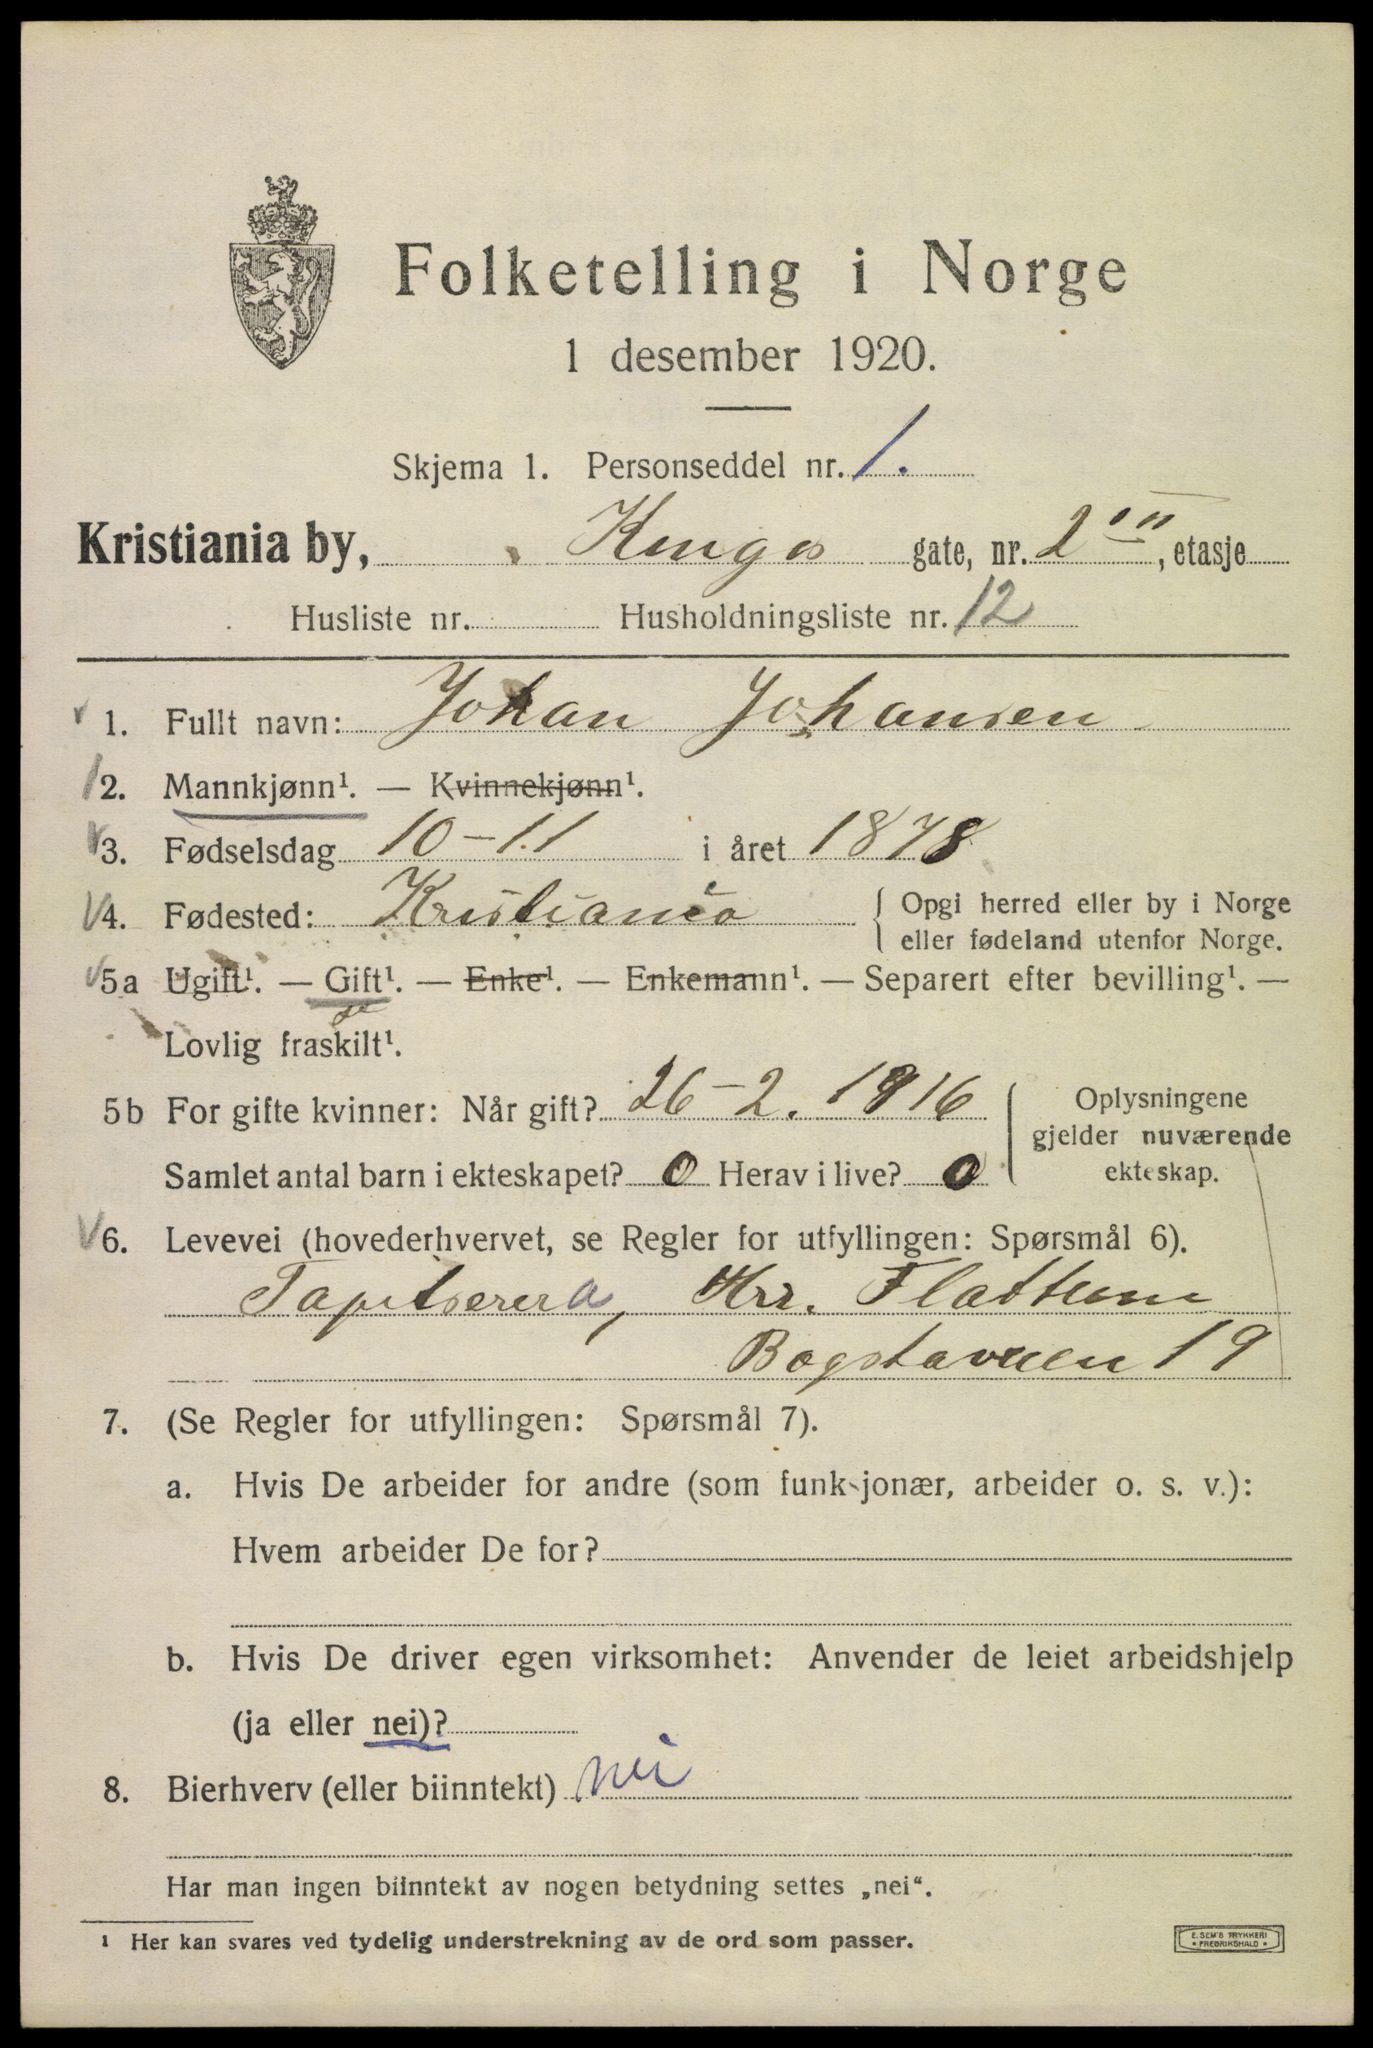 Folketelling i Norge
1 desember 1920.
Skjema 1. Personseddel nr. 1.
Kristiania by, Kingos gate, nr. 2 III, etasje
Husliste nr. Husholdningsliste nr. 12
1. Fullt navn: Johan Johansen
2. Mannkjønn¹. — Kvinnekjønn¹.
3. Fødselsdag 10-11 i året 1878
4. Fødested: Kristiania { Opgi herred eller by i Norge
eller fødeland utenfor Norge.
5a Ugift¹. — Gift¹. — Enke¹. — Enkemann¹. — Separert efter bevilling¹. —
Lovlig fraskilt¹.
5b For gifte kvinner: Når gift? 26-2. 1916
Samlet antal barn i ekteskapet? 0 Herav i live? 0
Oplysningene
gjelder nuværende
ekteskap.
6. Levevei (hovederhvervet, se Regler for utfyllingen: Spørsmål 6).
Tapetserer, Hrr.
Bogstaveien 19
7. (Se Regler for utfyllingen: Spørsmål 7).
a. Hvis De arbeider for andre (som funksjonær, arbeider o. s. v.):
Hvem arbeider De for?
b. Hvis De driver egen virksomhet: Anvender de leiet arbeidshjelp
(ja eller nei)?
8. Bierhverv (eller biinntekt) nei
Har man ingen biinntekt av nogen betydning settes „nei“.
¹ Her kan svares ved tydelig understrekning av de ord som passer.
E. SEM'S TRYKKERI
• FREDRIKSHALD •